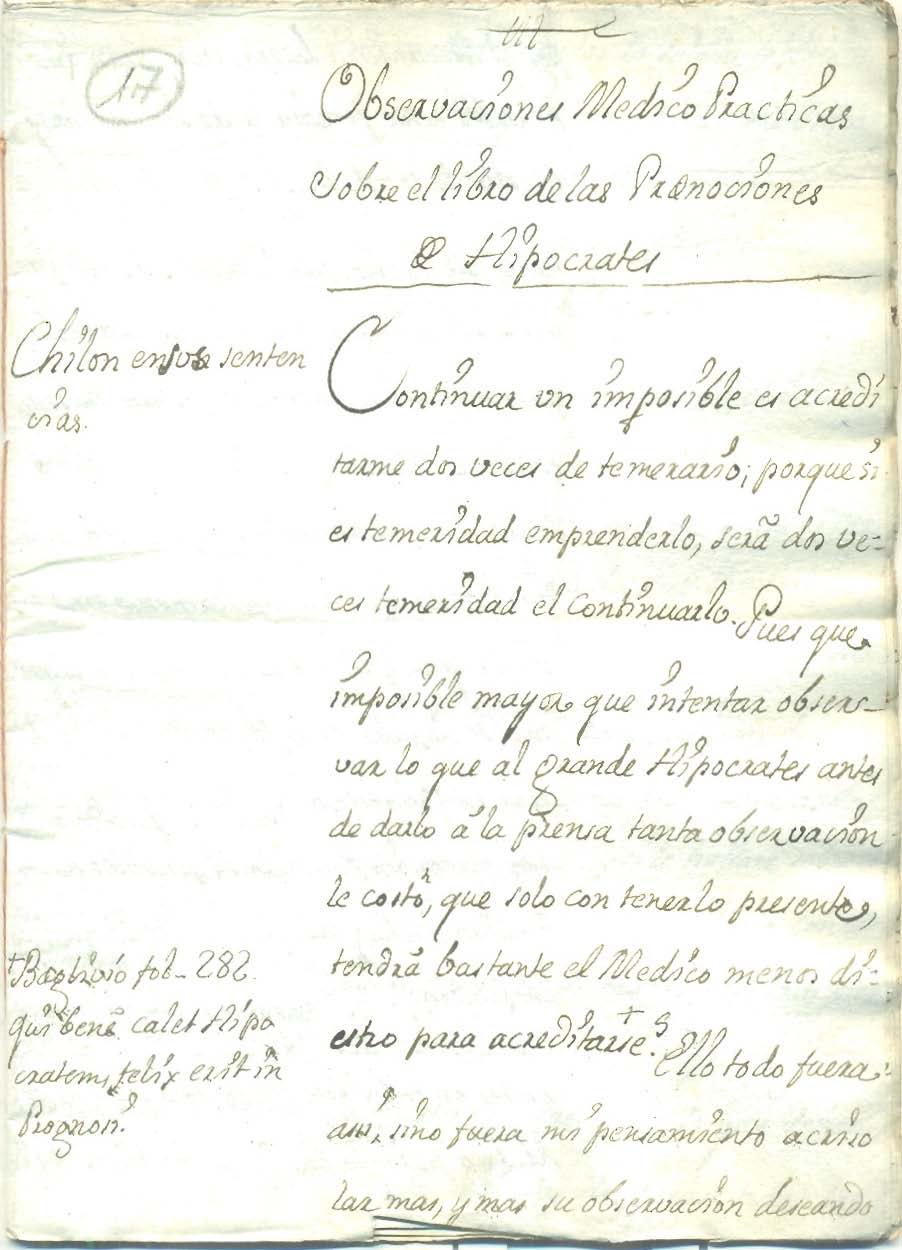 17
Observaciones Medico Practicas
sobre el libro de las Prænociones
de Hipocrates
Chilon en sus senten
cias.
Continuar un imposible es acredi
tarme dos veces de temerario; porque si
es temeridad emprenderlo, serã dos ve-
ces temeridad el continuarlo. Pues que
imposible mayor que intentar obser-
var lo que al grande Hipocrates antes
de darlo á la prensa tanta observacion
le costò, que solo con tenerlo presente,
tendrã bastante el Medico menos di-
estro para acreditarse.+ Ello todo fuera
asi, sino fuera mi pensamiento acriso
lar mas, y mas su observacion deseando
+Baglivio fol- 282.
qui benè calet Hipo
cratem, felix erit in
Prognosi.